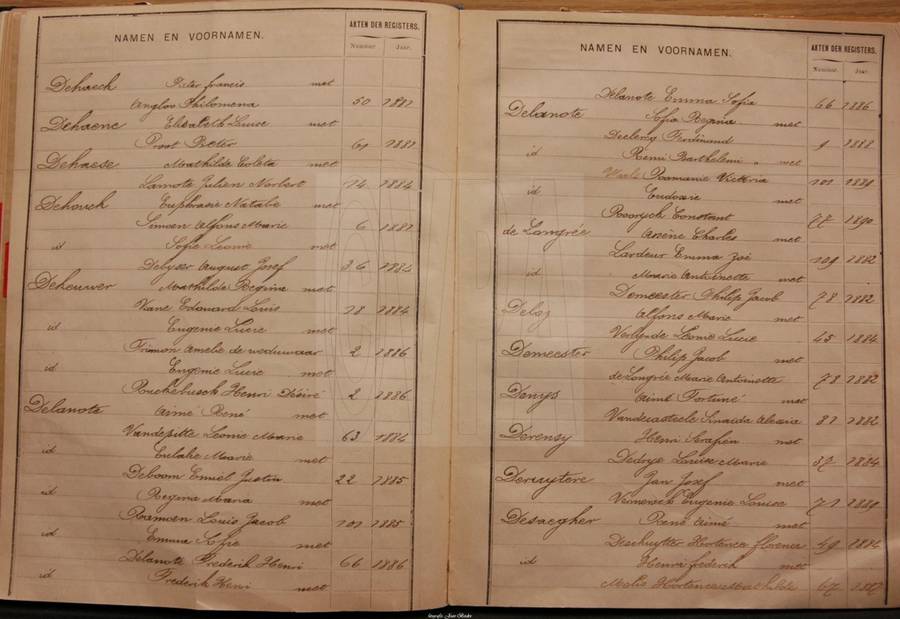 NAMEN EN VOORNAMEN.
AKTEN DER REGISTERS.
Nummer. Jaar.
Dehaeck Pieter francis met
Anglou Philomena 50 1881
Dehaene Elisabeth Luise met
Pieter 61 1881
Dehaese Mathilde Coleta met
Lamote Julien Norbert 14 1884
Dehouck Euphrasie Natalie met
Simoen Alfons Marie 6 1881
id Sofie Leonie met
Debyser August Josef 36 1884
Deheuwer Mathilde Regina met
Viane Edouard Louis 18 1884
id Eugenie Lucie met
Amelie de weduwaar 2 1886
id Eugenie Lucie met
Bouchebusch Henri Désiré 2 1886
Delanote Aimé René met
Vandepitte Leonie Marie 63 1884
id Eulalie Marie met
Deboom Emiel Justin 22 1885
id Regina Maria met
Ramoen Louis Jacob 101 1885
id Emma Sofie met
Delanote Frederik Henri 66 1886
id Frederik Henri met
NAMEN EN VOORNAMEN.
AKTEN DER REGISTERS.
Nummer. Jaar.
Delanote Emma Sofia 66 1886
Delanote Sofia Regina met
Declercq Ferdinand 1 1888
id Remi Barthelemi met
Romanie Victoria 101 1889
id Eudoxie met
Constant 77 1890
de Langrée Arsène Charles met
Lardeur Emma Zoë 109 1882
id Marie Antoinette met
Demeester Philip Jacob 78 1882
Alfons Marie met
Verlynde Leonie Lucie 45 1884
Demeester Philip Jacob met
de Langrée Marie Antoinette 78 1882
Denys Aimé Fortuné met
Vandecasteele Sinaida Alexia 81 1882
Derensy Henri Serafin met
Dedrye Louise Marie 37 1884
Deruytere Jan Josef met
Eugenie Louise 71 1889
Desaegher René Aimé met
Deschuyter Hortence florence 49 1884
id Henri frederik met
Malis Hortence Mathilde 67 1887